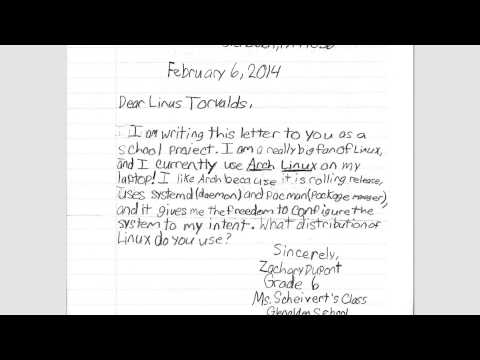 February 6, 2014
Dear Linus Torvalds,
I am writing this letter to you as a
school project. I am a really big fan of Linux,
and I currently use Arch Linux on my
laptop! I like Arch because it is rolling release,
uses systemd (daemon) and pacman (package
and it gives me the freedom to configure the
system to my intent. What distribution of
Linux do you use?
Sincerely,
Zachary DuPont
Grade 6
Ms. Scheivert's Class